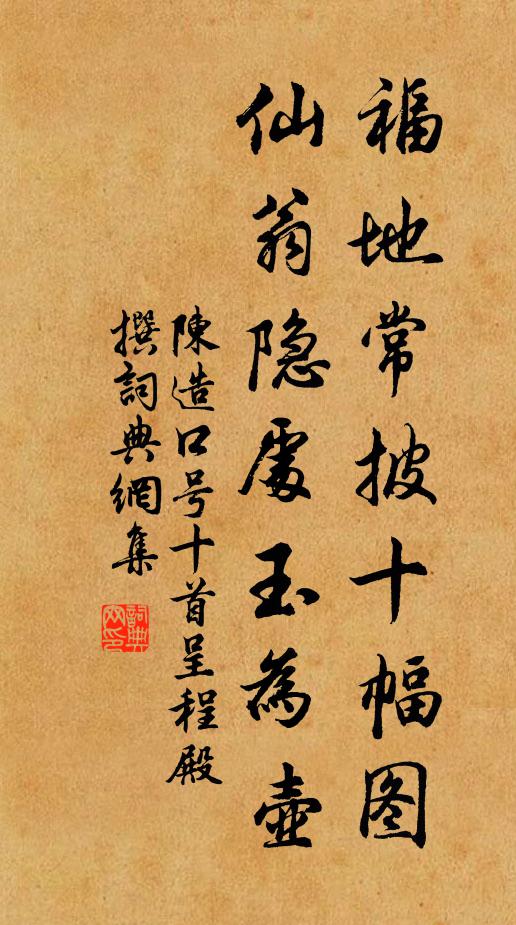 福地常披十幅图
仙翁隐處玉為壺
陳造口号十首呈程殿
撰詞典網集
詞典网印